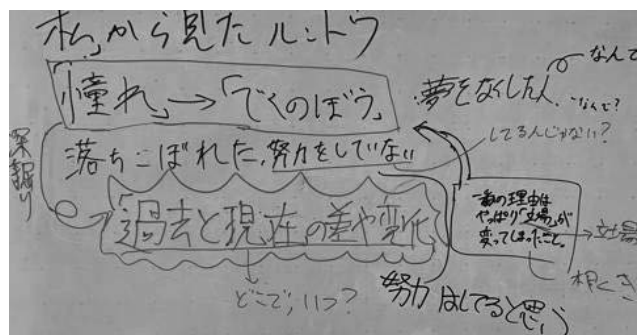 私から見たルントウ
「憧れ」→「でくのぼう」
夢をなくした人
なんで
なんで?
落ちこぼれた,努力をしていない
してる人じゃない?
深堀り
「過去と現在の差や変化」
一番の理由は
やっぱり「立場」が
変ってしまったこと。
→立場
どこで,いつ?
努力はしてると思う